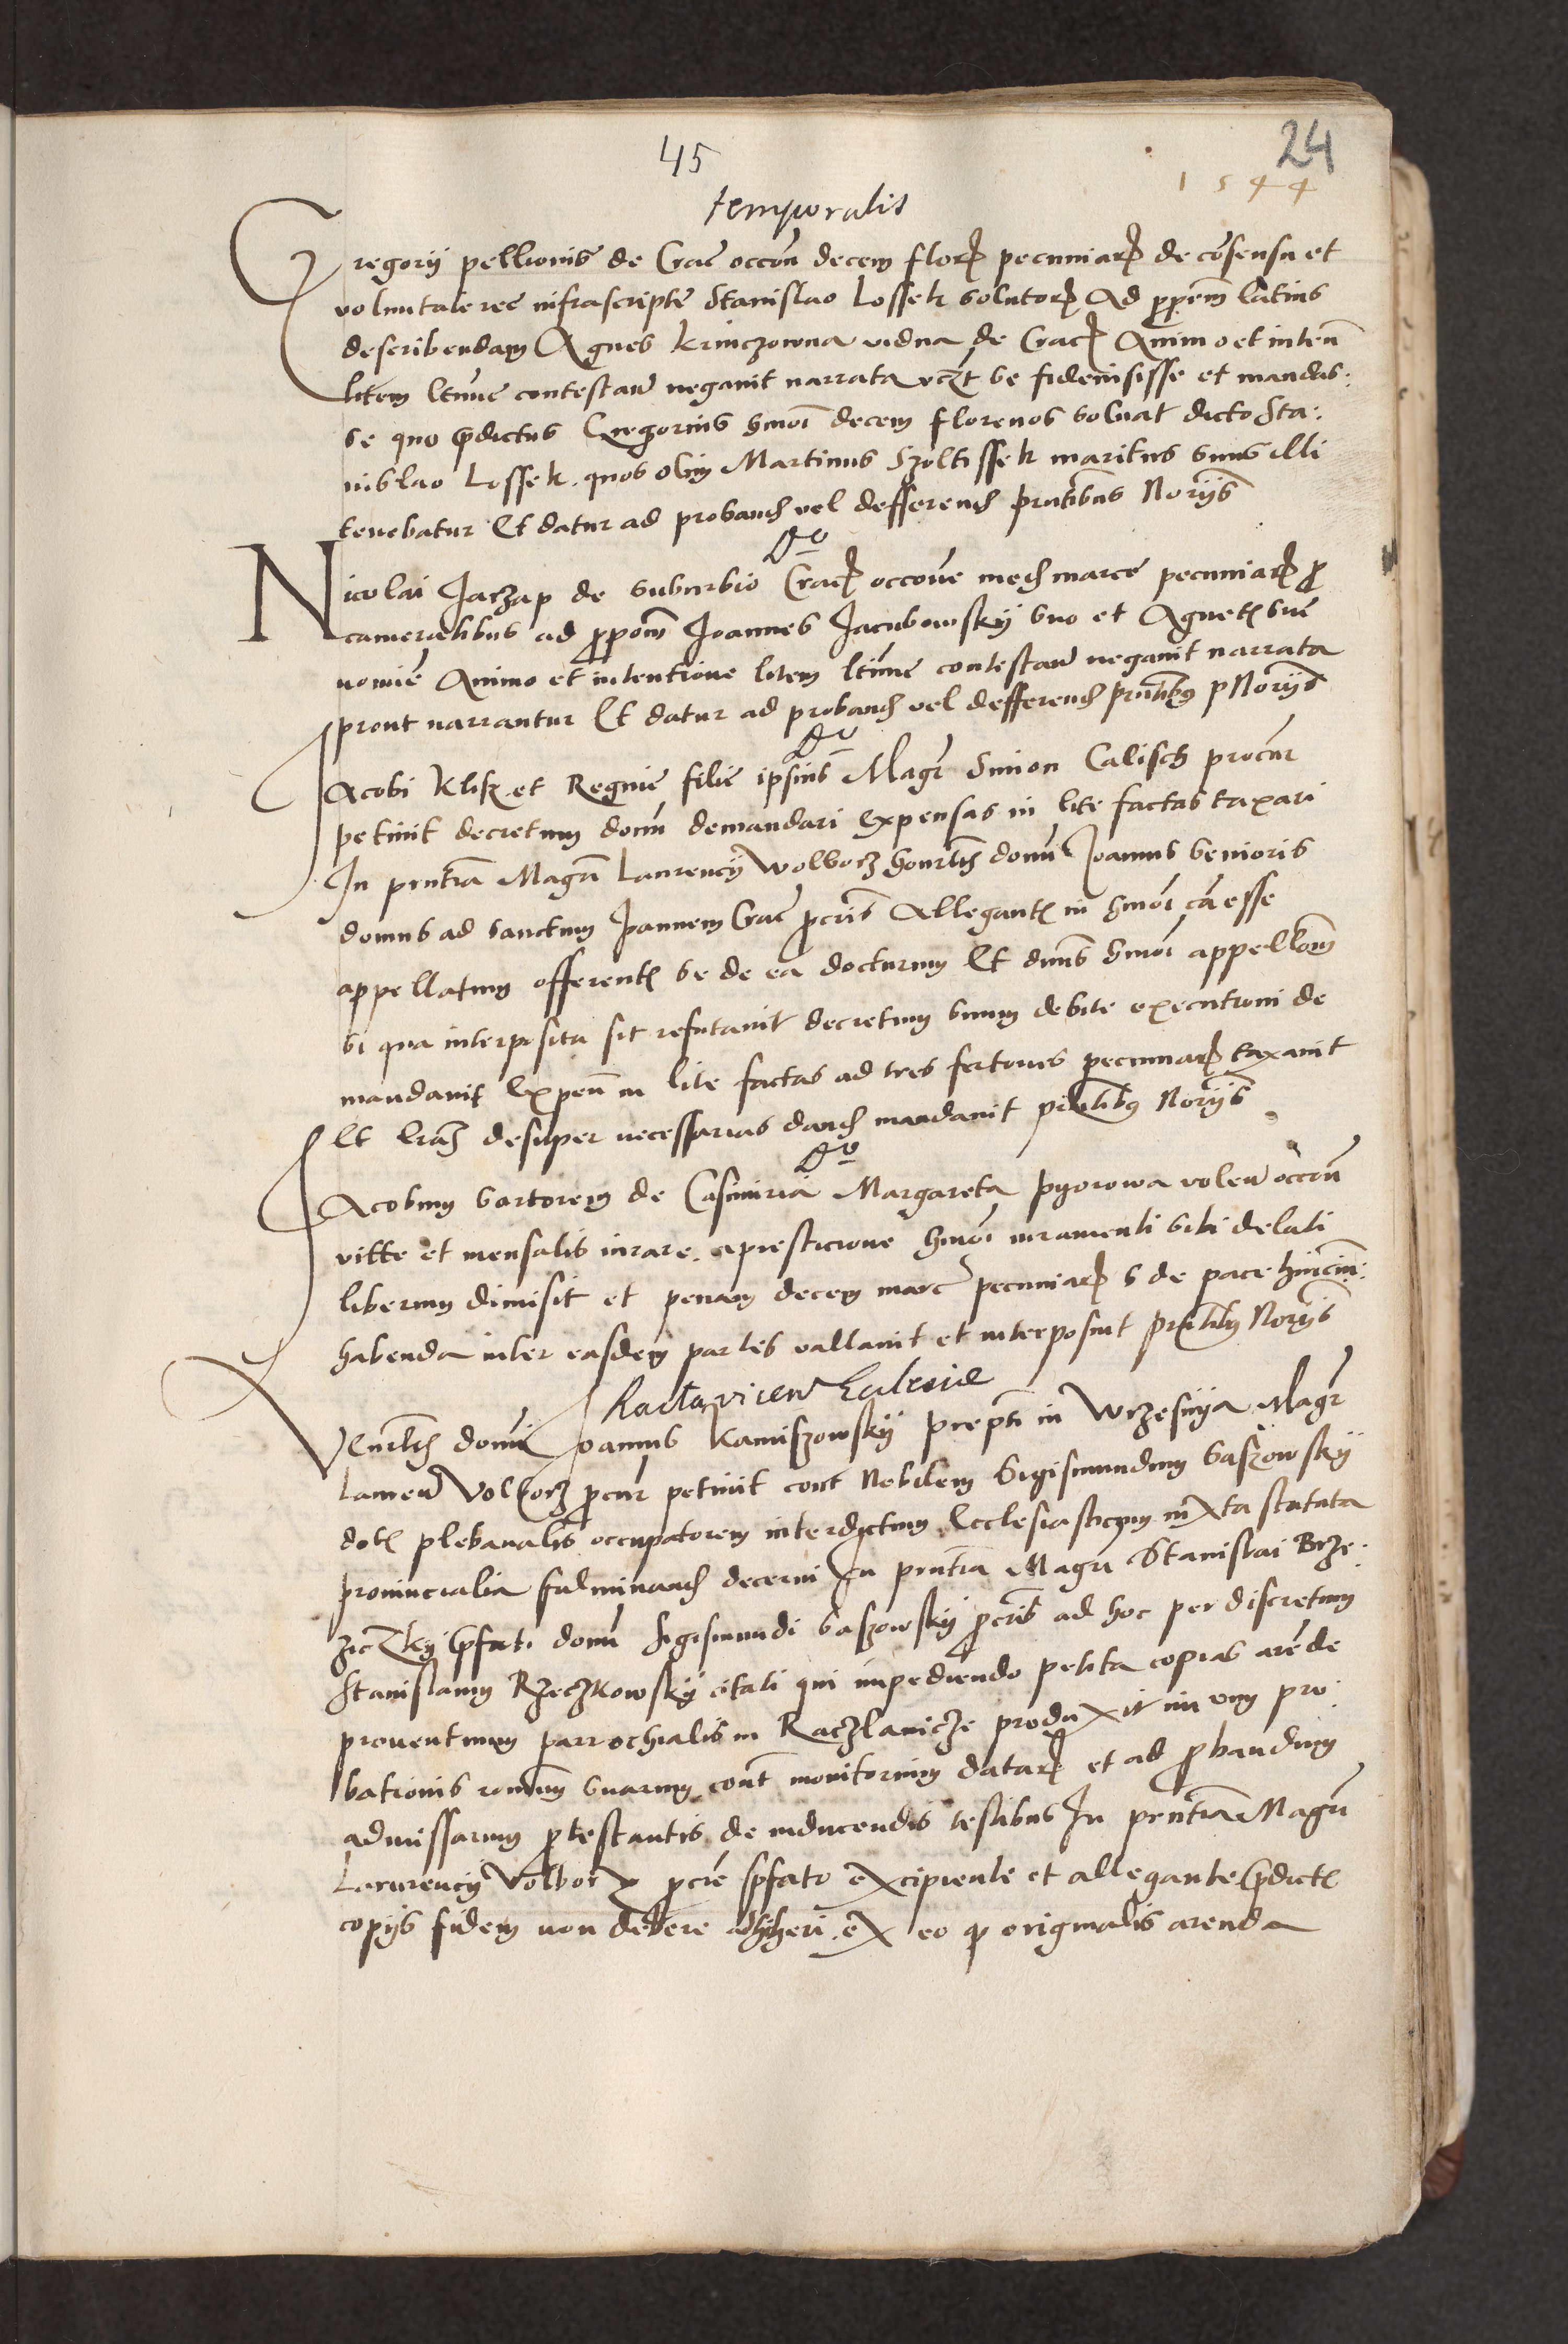 45
24
1544
temporalis
Gregorii pellionis de Crac occōn decem floꝝ pecuniaꝝ de cōsensu et
voluntate ree infrascripte Stanislao Lossek solutoꝝ Ad ꝓpōem latius
describendam Agnes Krinczowna vidua de Crac Animo et inten̄
litem ltīme contestan̄ negavit narrata vczt se fideiusisse et mandas:
se quo p̄dictus Gregorius hmōi decem florenos solvat dicto Sta:
nislao Lossek. quos olim Martinus Szoltissek maritus suus illi
tenebatur Et datur ad proband vel defferend p̄ntibus Norijs
Do
Nicolai Jaczap de suburbio Crac occōne med marce pecuniaꝝ ꝓ
cameralibus ad ꝓpōem Joannes Jacubowsky suo et Agnet sue
nomīe Animo et intentione litem ltīme contestan̄ negavit narrata
prout narrantur Et datur ad proband vel defferend p̄ntibus Norijs
Do
Jacobi Klisz et Regine filie ipsius Magr Simon Calisch procur
petivit decretum domī demandari Expensas in lite factas taxari
In pn̄tia Magri Laurencij Wolborz honrlis domī Joannis Senioris
domus ad sanctum Joannem Crac ꝓcris Allegant in hmōi cā esse
appellatum offerent se de ea docturum Et dn̄us hmōi appellōem
si qua interposita sit refutavit decretum suum debite executioni de
mandavit Expen̄ in lite factas ad tres fertones pecuniaꝝ taxavit
Et lras desuper necessarias dand mandavit p̄ntibus Norijs
Do
Jacobum sartorem de Casimiria Margareta pyorowa volen̄ occōn
vitte et mensalis iurare. a prestacione hmōi iuramenti sibi delati
liberum dimisit et penam decem marc pecuniaꝝ s de pace hincin:
habenda inter easdem partes vallavit et interposuit p̄ntibus Norijs
Raclavicen Ecclesie
Venrlis domī Joannis Kamiszowsky prepti in Wrzesnya Magr
Lauren̄ Volborz ꝓcur petivit cont Nobilem Sigismundum Saszowsky
dot plebanalis occupatorem interdictum Ecclesiasticum iuxta statuta
provincialia fulminand decerni In pn̄tia Magri Stanislai Brze:
ziczky p̄fati domī Sigismundi Saszowsky ꝓcris ad hoc per discretum
Stanislaum Rzeczkowsky citati qui impediendo petita copias arēde
proventuum parrochialis in Raczlavicze produxit in vim pro:
bationis ronum suarum cont monitorium dataꝝ et ad ꝓbandum
admissarum ꝓtestantis de inducendis testibus In pn̄tia Magri
Laurencij Volborz ꝓcre p̄fato excipiente et allegante p̄dict
copijs fidem non debere adhiberi. ex eo ꝙ originalis arenda